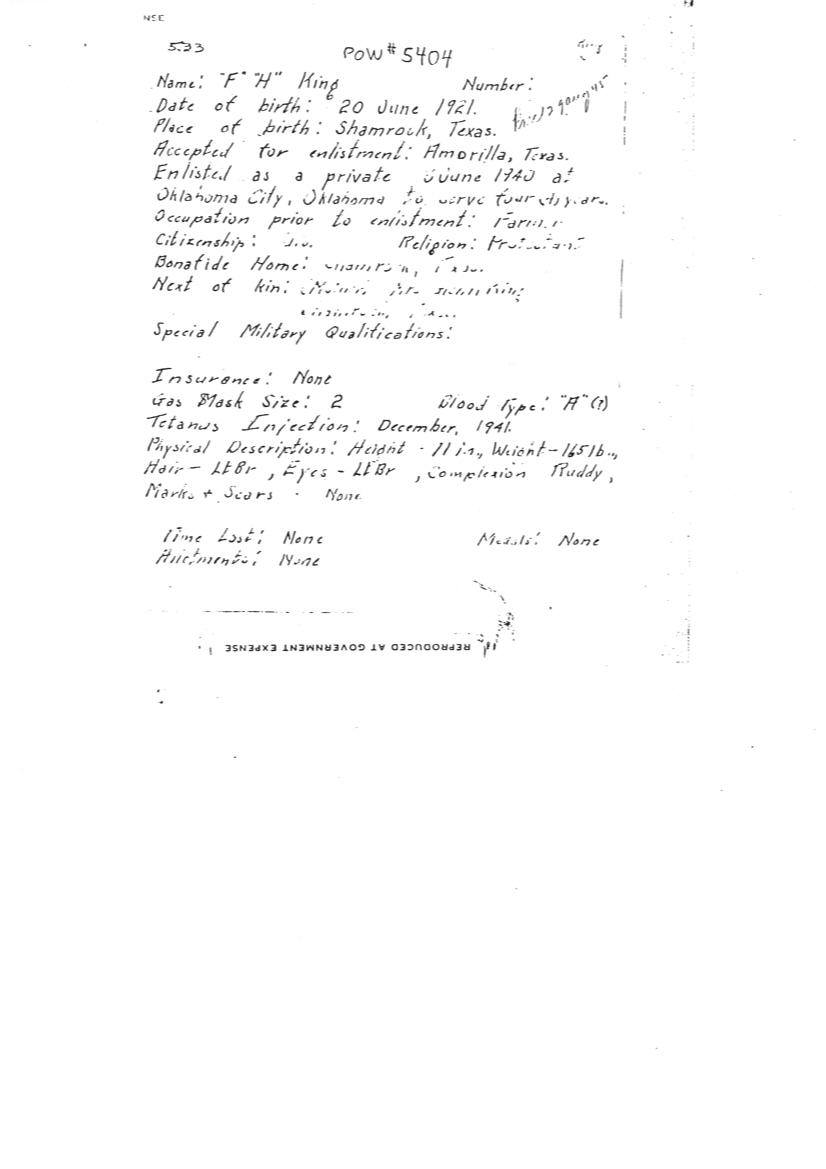 NSE
533
POW# 5404
Name: "F" "H" King Number:
Date of birth: 20 June 1921.
Place of birth: Shamrock, Texas.
Accepted for enlistment: Amorilla, Texas.
Enlisted as a private June 1940 at
Oklahoma City, Oklahoma to serve four years.
Occupation prior to enlistment: Farmer
Citizenship: Religion: Protestant
Bonafide Home:
Next of kin: King
Special Military Qualifications:
Insurance: None
Gas Mask Size: 2 Blood Type: "A" (?)
Tetanus Injection: December, 1941.
Physical Description: Height - 11 in., Weight - 165 lb.,
Hair - LtBr, Eyes - LtBr, Complexion Ruddy,
Marks + Scars - None
Time Lost: None Medals: None
Allotments: None
REPRODUCED AT GOVERNMENT EXPENSE